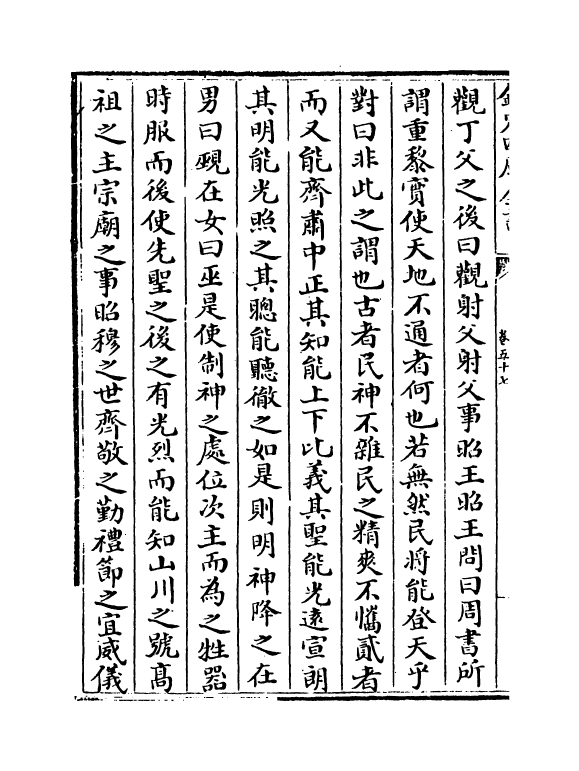 欽定四庫全書
卷五十七
觀丁父之後曰觀射父射父事昭王昭王問曰周書所
謂重黎實使天地不通者何也若無然民將能登天乎
對曰非此之謂也古者民神不雜民之精爽不㩦貳者
而又能齊肅中正其知能上下比義其聖能光逺宣朗
其明能光照之其聰能聽徹之如是則明神降之在
男曰覡在女曰巫是使制神之處位次主而為之牲器
時服而後使先聖之後之有光烈而能知山川之號髙
祖之主宗廟之事昭穆之世齊敬之勤禮節之宜威儀